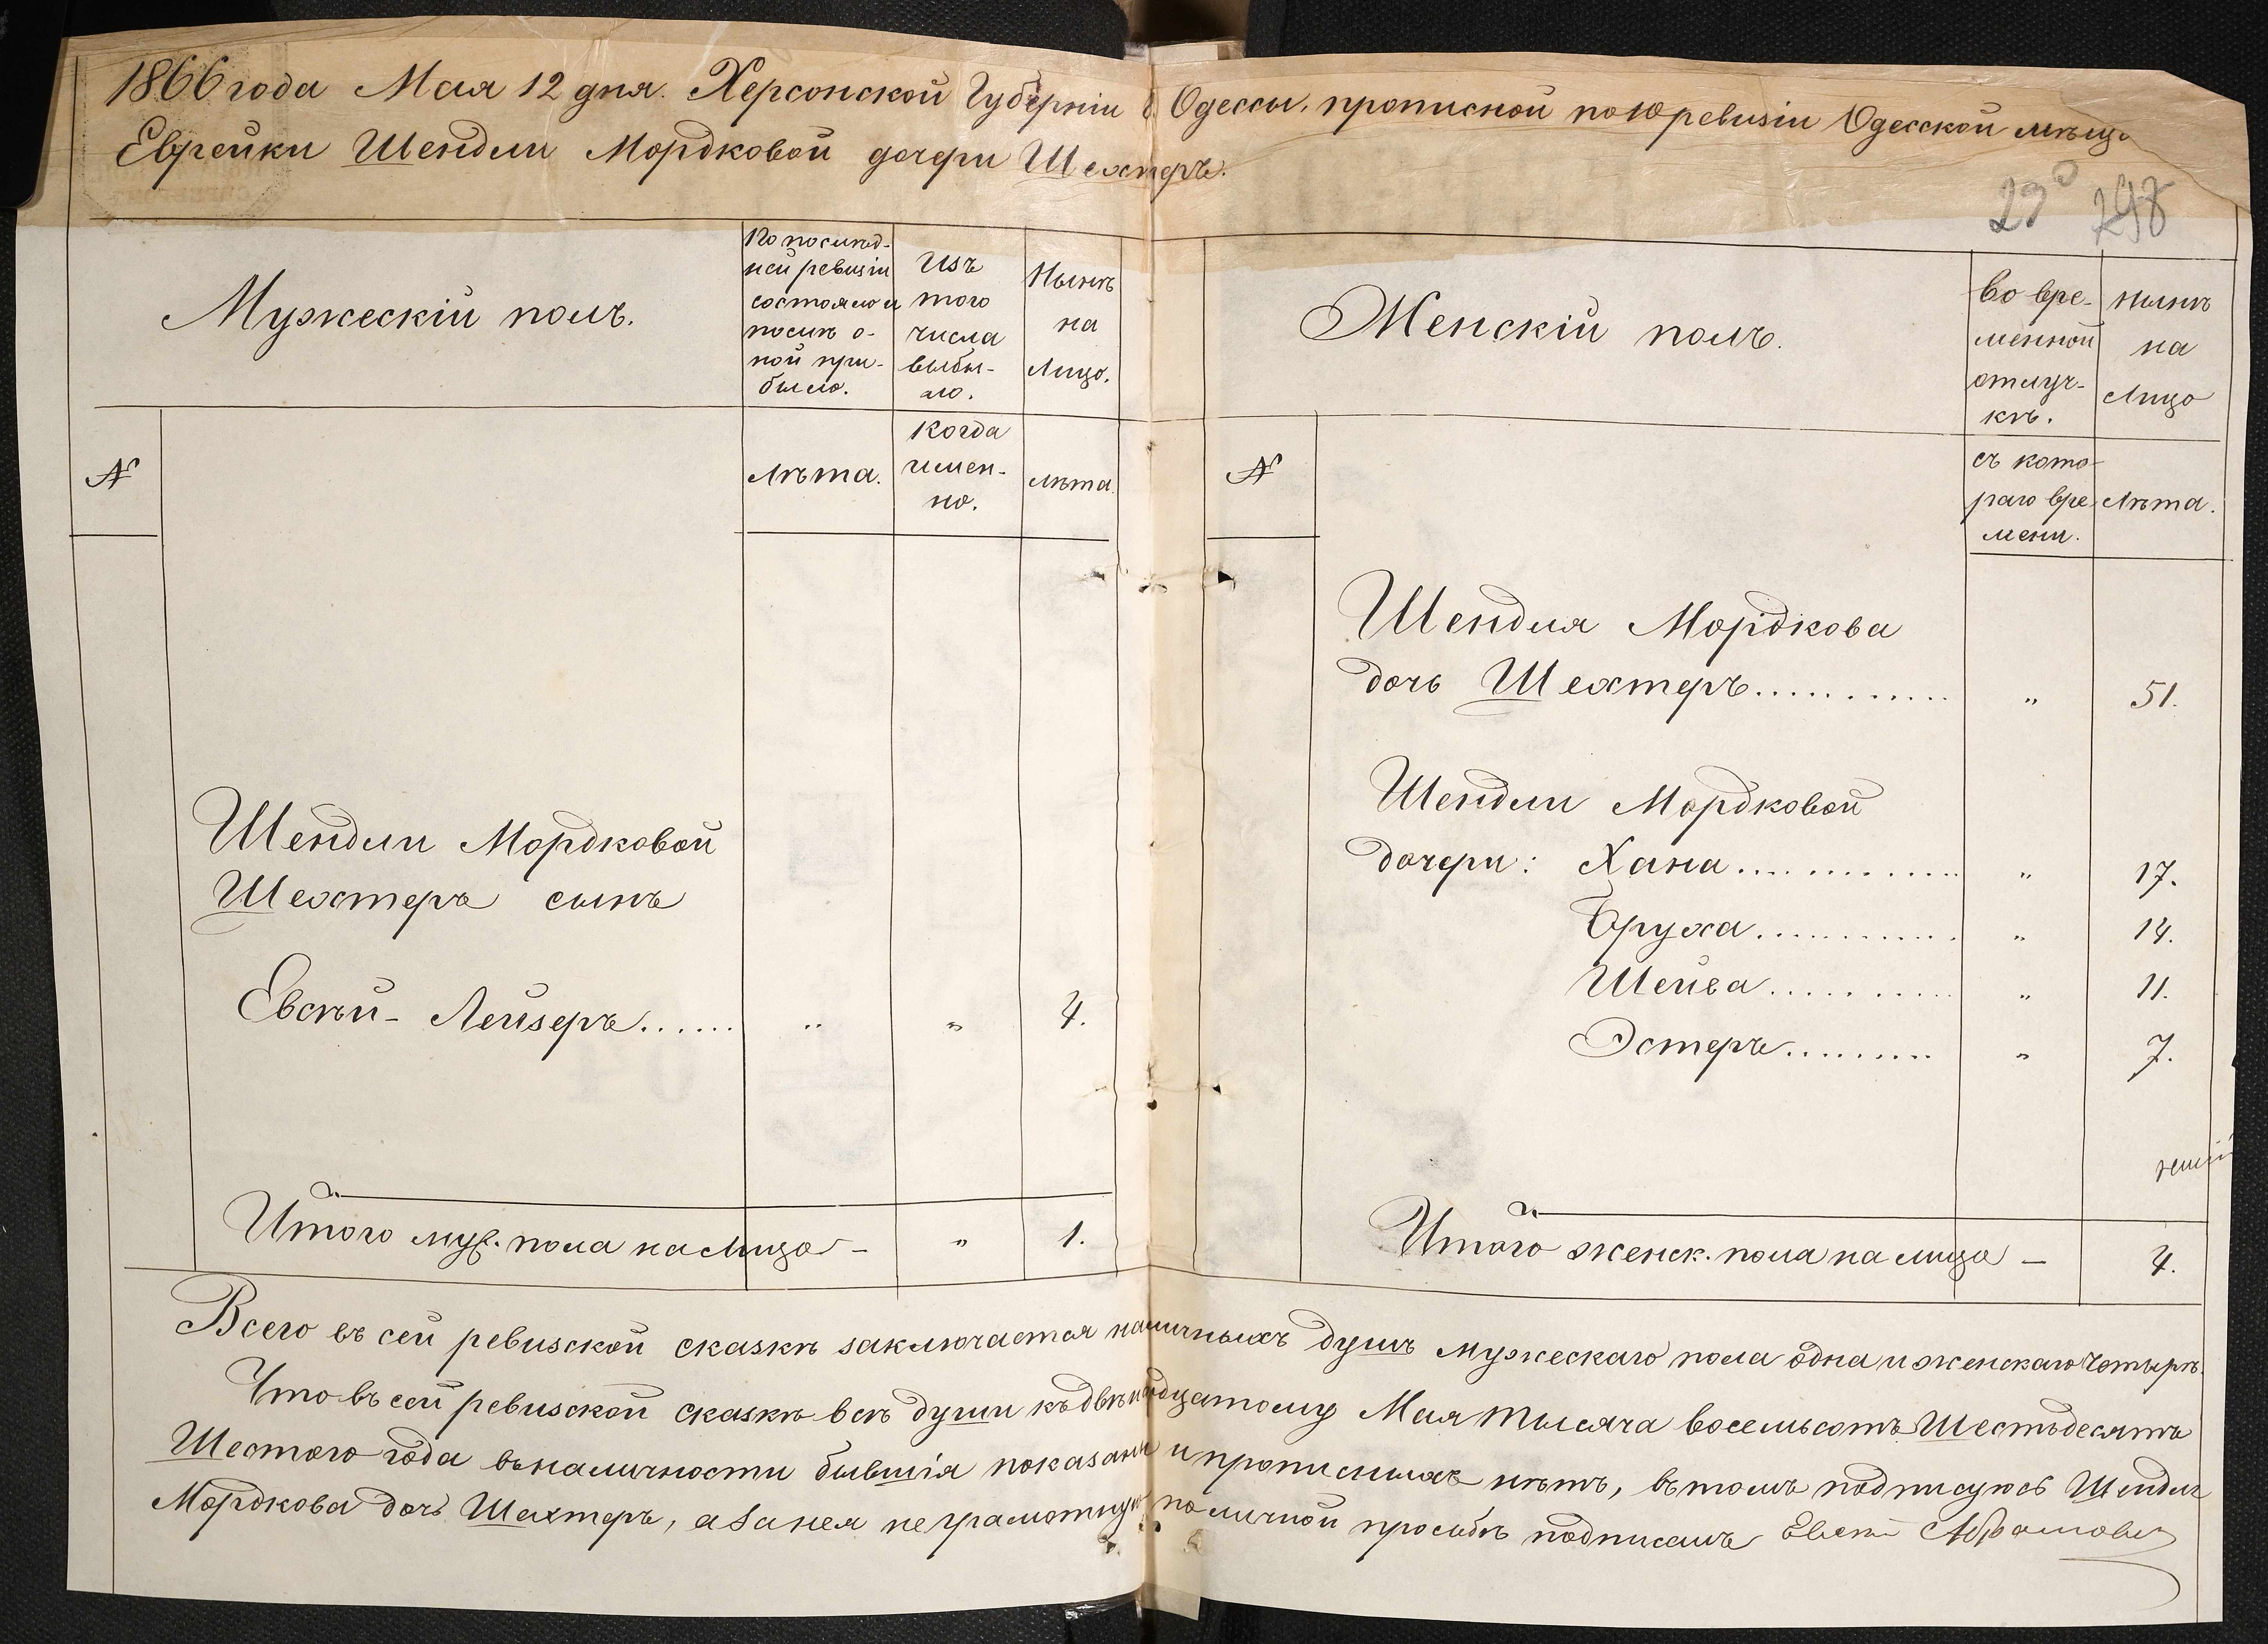 1866 года Мая 12 дня. Херсонской Губерніи г. Одессы, прописной по 10 ревизіи Одесской мѣщ
Еврейки Шендли Мордковой дочери Шехтеръ.
298
Мужескій полъ.
По послѣд-
ней ревизіи
состояло и
послѣ о-
ной при-
было.
Изъ
того
числа
выбы-
ло.
Нынѣ
на
Лицо.
№
Лѣта.
Когда
имен-
но.
Лѣта.
Шендли Мордковой
Шехтеръ сынъ
Евсѣй-Лейзеръ...... „ „ 4.
Итого муж. пола на Лицо — „ 1.
Женскій полъ.
во вре-
менной
отлуч-
кѣ.
Нынѣ
на
Лицо
№
съ кото-
раго вре-
мени.
Лѣта.
Шендля Мордкова
дочь Шехтеръ........... „ 51.
Шендли Мордковой
дочери: Хана............ „ 17.
Бруха............ „ 14.
Шейва.......... „ 11.
Эстеръ......... „ 7.
Итого женск. пола на лицо — 4.
Всего въ сей ревизской сказкѣ заключается наличныхъ душъ мужескаго пола одна и женскаго четыре.
Что въ сей ревизской сказкѣ всѣ души къ двѣнадцатому Мая тысяча восемьсотъ Шестьдесятъ
Шестого года въ наличности бывшія показаны и прописныхъ нѣтъ, въ томъ подписуюсь Шендля
Мордкова дочь Шехтеръ, а за нея неграмотную по личной просьбѣ подписалъ Евсей Абрамовичъ